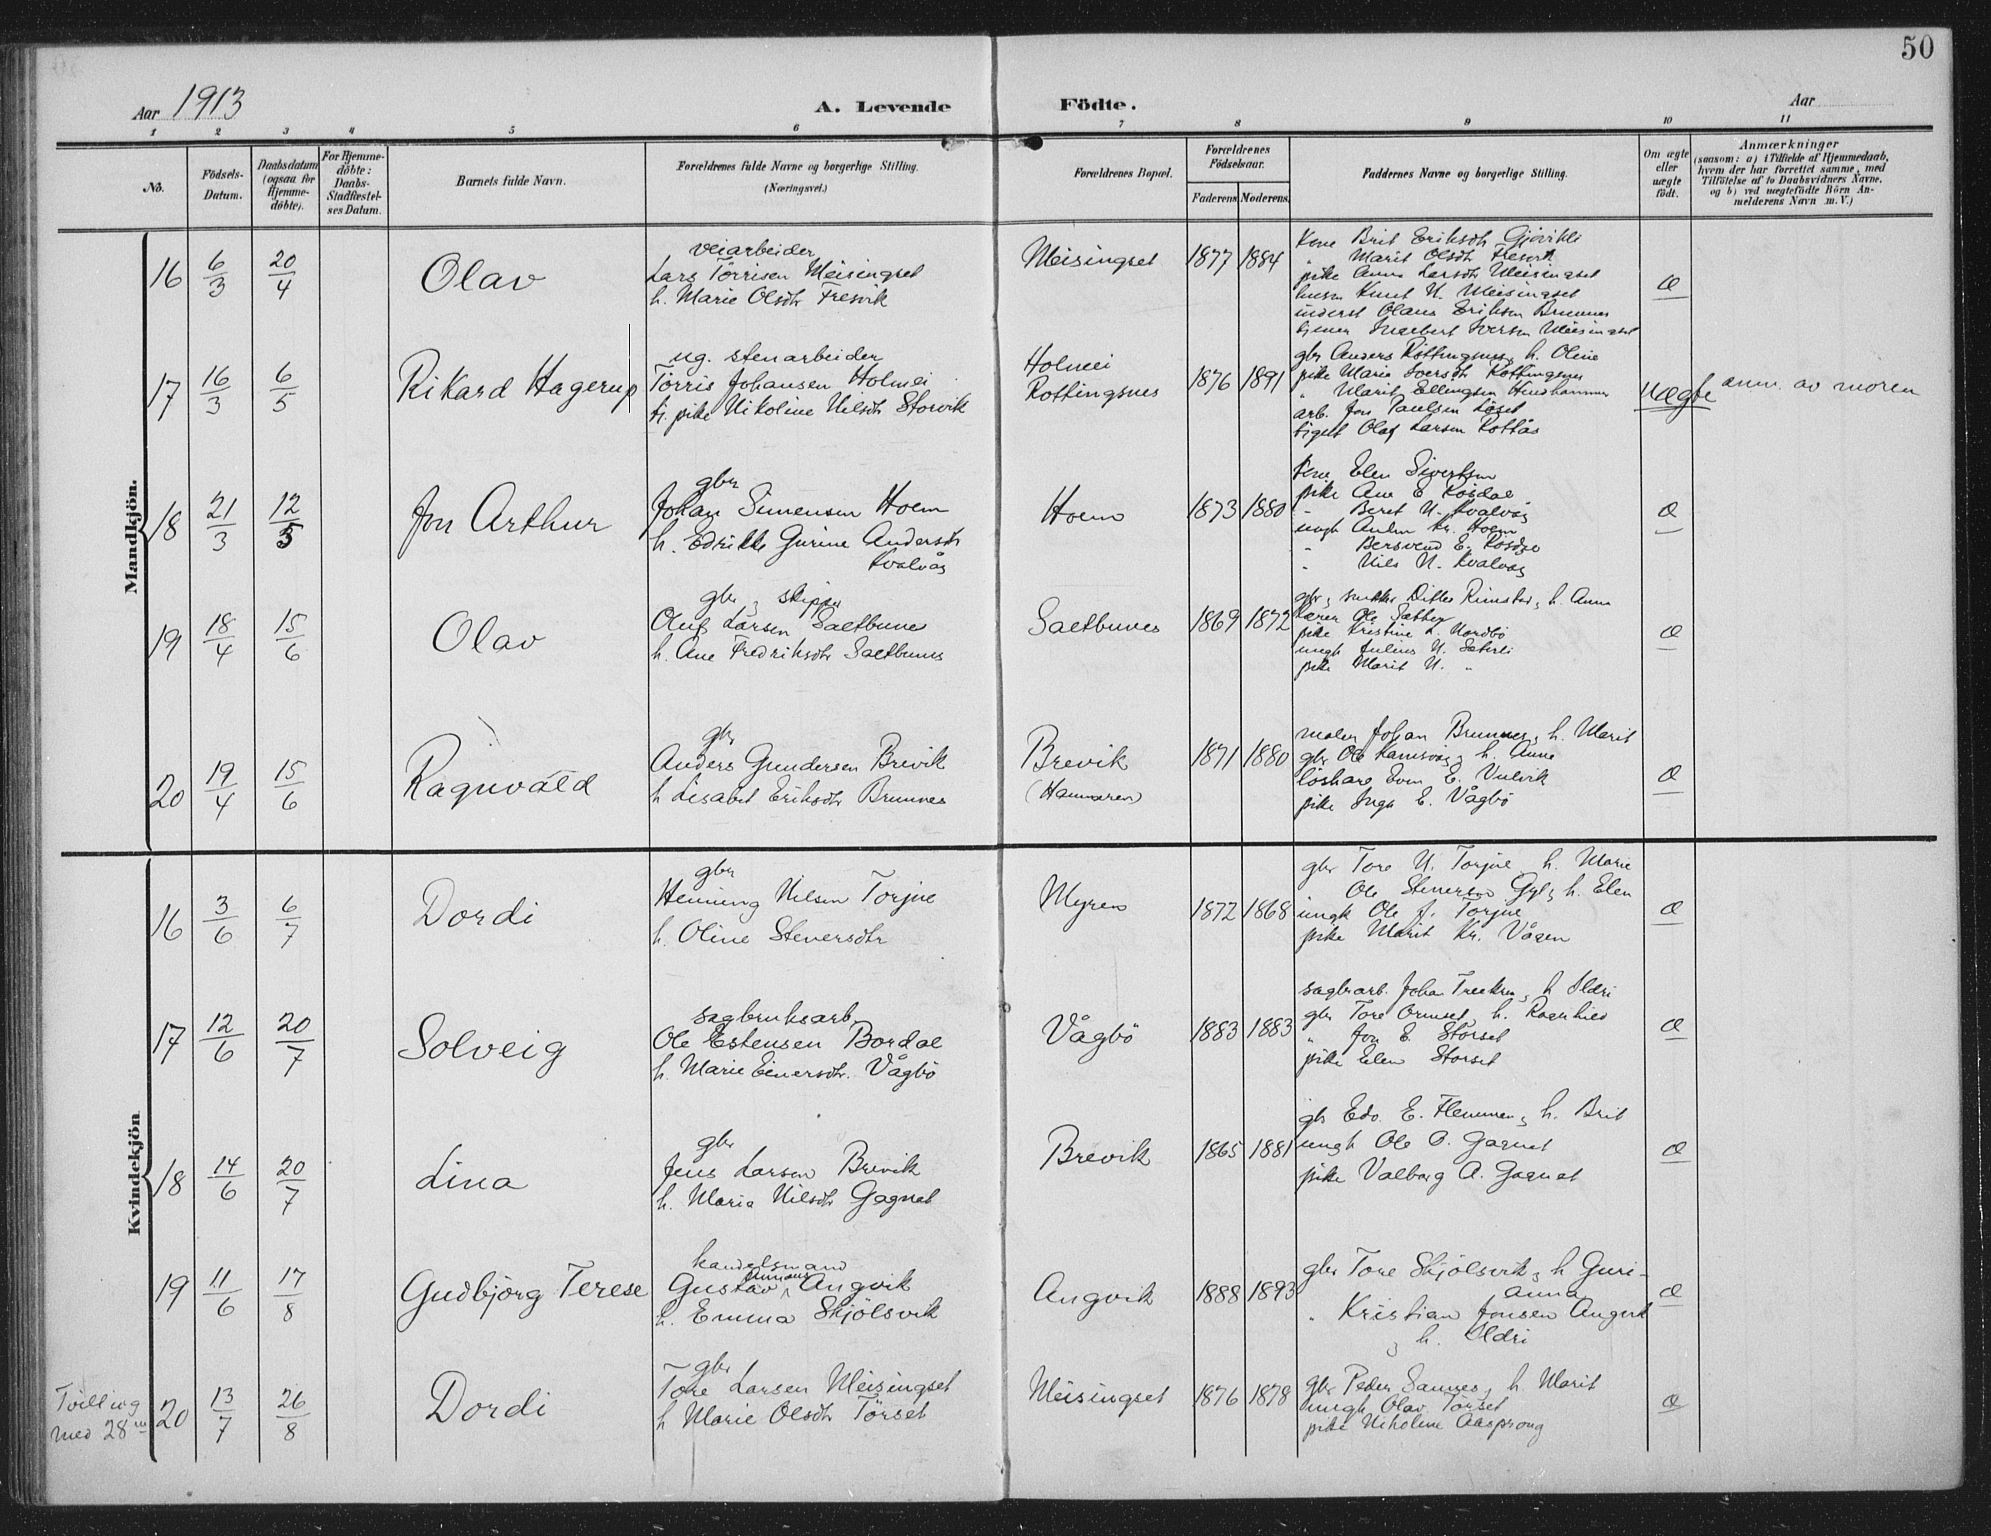 50
Aar 1913
A. Levende Födte.
Aar
1 2 3 4 5 6 7 8 9 10 11
No.
Födsels-
Datum.
Daabsdatum
(ogsaa för
Hjemme-
döbte).
For Hjemme-
döbte:
Daabs-
Stadfæstel-
ses Datum.
Barnets fulde Navn.
Forældrenes fulde Navne og borgerlige Stilling.
(Næringsvei.)
Forældrenes Bopæl.
Forældrenes
Födselsaar.
Faderens. Moderens.
Faddernes Navne og borgerlige Stilling.
Om ægte
eller
uægte
födt.
Anmærkninger
(saasom: a) i Tilfælde af Hjemmedaab,
hvem der har forrettet samme, med
Tilföielse af to Daabsvidners Navne,
og b) ved uægtefödte Börn An-
melderens Navn m. V.)
Mandkjön.
16 6/3 20/4 Olav
veiarbeider
Lars Tørrisen Meisingset
h. Marie Olsdtr Fresvik
Meisingset 1877 1884
Kone Brit Eriksdtr Gjøvikli
" Marit Olsdtr Fresvik
pike Anna Larsdtr Meisingset
husm Knut N. Meisingset
inderst Olaus Eriksen Brunnes
tjener Ingebert Iversen Meisingset
Æ
17 16/3 6/5 Rikard Hagerup
ug. stenarbeider
Tørris Johansen Holmei
tj. pike Nikoline Nilsdtr Storvik
Holmei
Rottingsnes
1876 1891
gbr Anders Rottingsnes, h. Oline
pike Marie Iversdtr Rottingsnes
" Marit Ellingsen Hendhammer
arb. Jon Paulsen Løset
Olaf Larsen Rottås
uægte anm. av moren
18 21/3 12/5 Jon Arthur
gbr
Johan Simensen Hoem
h. Edrikke Gurine Andersdtr
Kvalvåg
Hoem 1873 1880
Kone Elen Sivertsen
pike Ane E. Røsdal
" Beret N. Kvalvåg
ungk Anders Kr. Hoem
" Bersvend E. Røsdal
" Nils N. Kvalvåg
Æ
19 18/4 15/6 Olav
gbr & skipper
Oluf Larsen Saltbunes
h. Ane Fredriksdtr Saltbunes
Saltbunes 1869 1872
gbr & Ditlev Rimstad, h. Anna
Lærer Ole Sæther
pike Kristine L. Nordbø
ungk Julius N. Sæterli
pike Marit N. "
Æ
20 19/4 15/6 Ragnvald
gbr
Anders Gundersen Brevik
h Lisabet Eriksdtr Brunnes
Brevik
(Hammeren)
1871 1880
maler Johan Brunnes, h. Marit
gbr Ole Kamsvåg, h. Anne
løskare Even E. Vulvik
pike Inga E. Vågbø
Æ
Kvindekjön
16 3/6 6/7 Dordi
gbr
Henning Nilsen Torjul
h. Oline Stenersdtr
Myren 1872 1868
gbr Tore N. Torjul h. Marie
" Ole Stenersen Gyl, h. Elen
ungk Ole J. Torjul
pike Marit Kr. Vågen
Æ
17 12/6 20/7 Solveig
sagbruksarb
Ole Estensen Bordal
h. Marie Einersdtr. Vågbø
Vågbø 1883 1883
sagbrarb. Johan Treekrem, h Ildri
gbr Tore Ormset, h. Ragnhild
" Jon E. Storset
pike Elen Storset
Æ
18 14/6 20/7 Lina
gbr
Jens Larsen Brevik
h. Maria Nilsdtr Gagnat
Brevik 1865 1881
gbr Edv. E. Flemmen, h. Brit
ungk Ole O. Gagnat
pike Valborg A. Gagnat
Æ
19 11/6 17/8 Gudbjørg Terese
handelsmand
Gustav Angvik
h. Emma Skjølsvik
Angvik 1888 1893
gbr Tore Skjølsvik & h Guri-
anna
" Kristian Jonsen Angvik
& h. Oldri
Æ
Tvilling
med 28
20 13/7 26/8 Dordi
gbr
Tore Larsen Meisingset
h Marie Olsdtr Tørset
Meisingset 1876 1878
gbr Peder Sannes, h. Marit
ungk Olav Tørset
pike Nikoline Aasprong
Æ